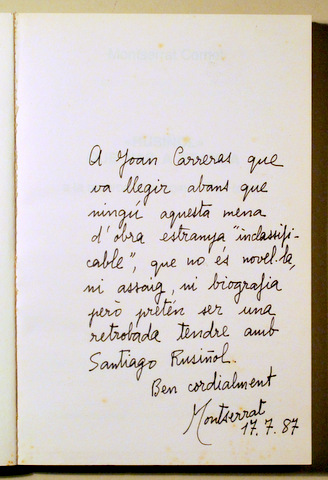 A Joan Carreras que
va llegir abans que
ningú aquesta mena
d'obra estranya "inclassifi-
cable", que no és novel·la,
ni assaig, ni biografia
però pretén ser una
retrobada tendre amb
Santiago Rusiñol.
Ben cordialment
Montserrat
17.7.87